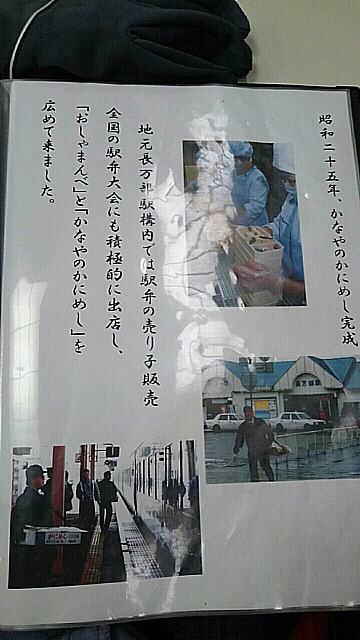 昭和二十五年、かなやのかにめし完成
地元長万部駅構内では駅弁の売り子販売
全国の駅弁大会にも積極的に出店し、
「おしゃまんべ」と「かなやのかにめし」を
広めて来ました。
長万部駅
かにめし